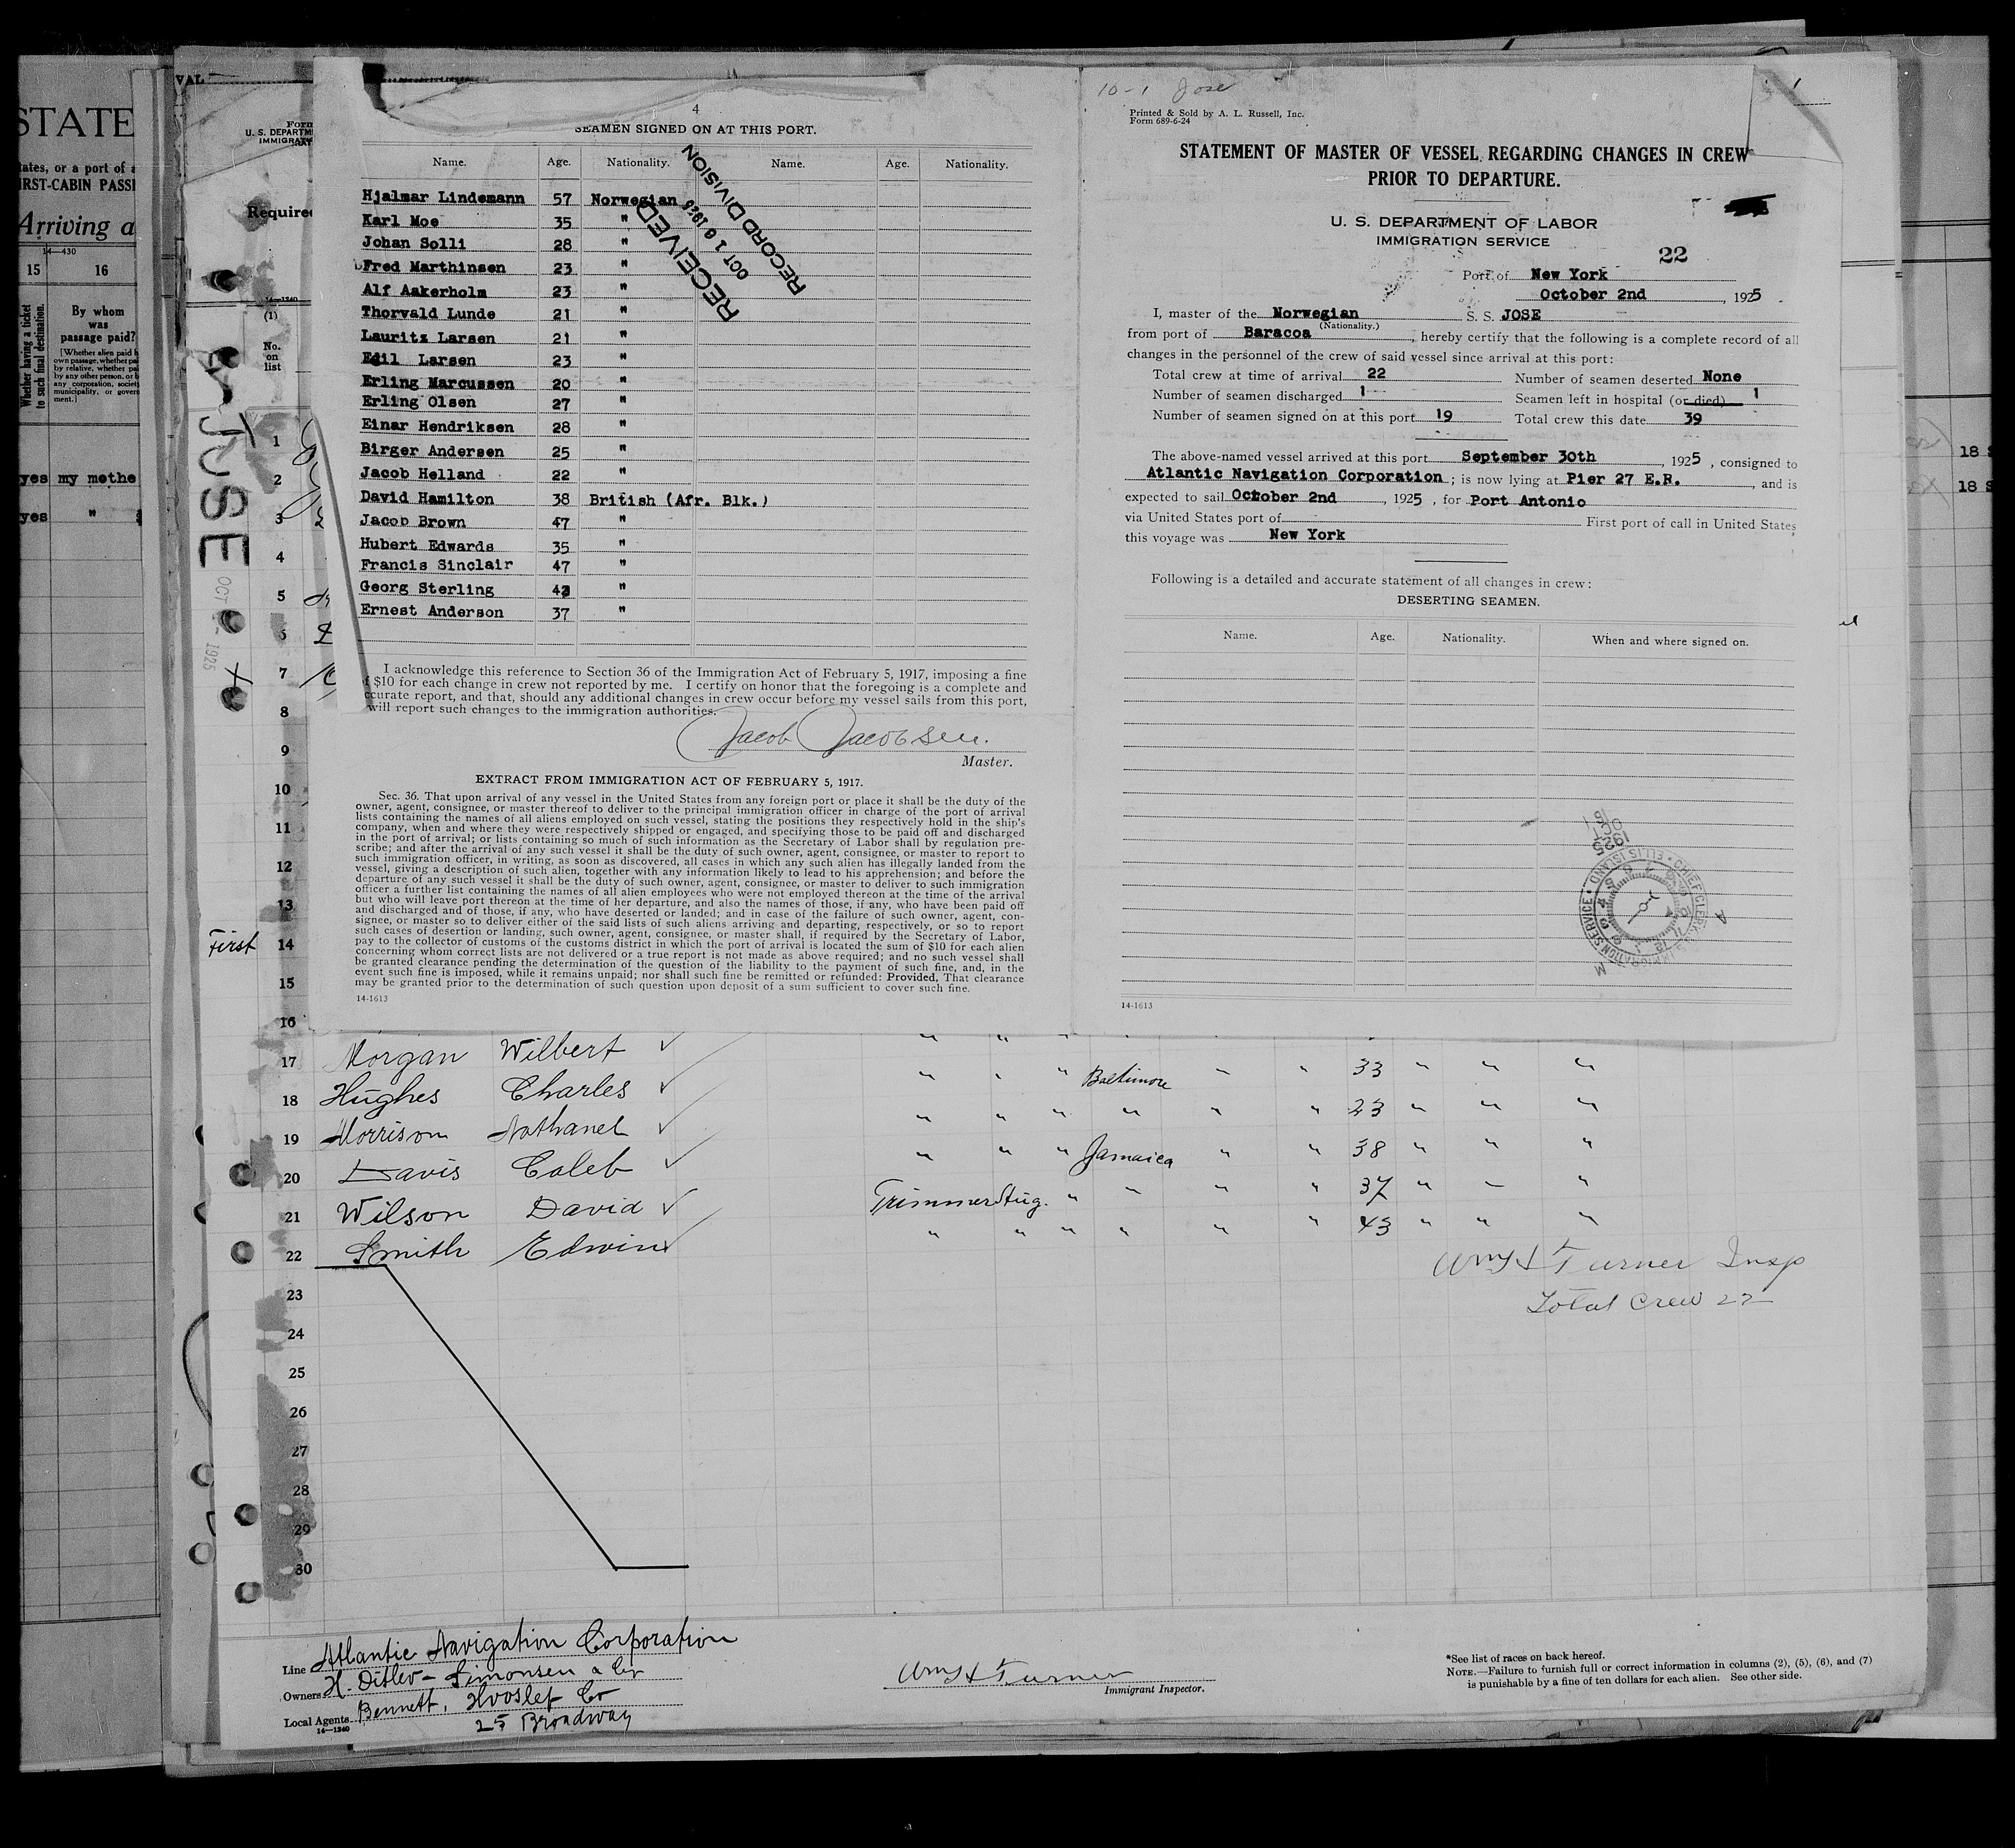 VAL
STATE
tates, or a port of a
IRST-CABIN PASSE
Arriving a
14—430
15 16
Whether having a ticket to such final destination.
By whom
was
passage paid?
yes my mothe
yes "
Form
U. S. DEPARTM
IMMIGRA
Required
14—1340
(1)
No.
on
list
JOSE
OCT - 1925
4
SEAMEN SIGNED ON AT THIS PORT.
Name. Age. Nationality. Name. Age. Nationality.
Hjalmar Lindemann 57 Norwegian
Karl Moe 35 "
Johan Solli 28 "
Fred Marthinsen 23 "
Alf Aakerholm 23 "
Thorvald Lunde 21 "
Lauritz Larsen 21 "
Edil Larsen 23 "
Erling Marcussen 20 "
Erling Olsen 27 "
Einar Hendriksen 28 "
Birger Andersen 25 "
Jacob Helland 22 "
David Hamilton 38 British (Afr. Blk.)
Jacob Brown 47 "
Hubert Edwards 35 "
Francis Sinclair 47 "
Georg Sterling "
Ernest Anderson 37 "
RECEIVED
OCT 10 1925
RECORD DIVISION
I acknowledge this reference to Section 36 of the Immigration Act of February 5, 1917, imposing a fine
$10 for each change in crew not reported by me. I certify on honor that the foregoing is a complete and
ccurate report, and that, should any additional changes in crew occur before my vessel sails from this port,
will report such changes to the immigration authorities.
Jacob Jacobsen.
Master.
EXTRACT FROM IMMIGRATION ACT OF FEBRUARY 5, 1917.
Sec. 36. That upon arrival of any vessel in the United States from any foreign port or place it shall be the duty of the
owner, agent, consignee, or master thereof to deliver to the principal immigration officer in charge of the port of arrival
lists containing the names of all aliens employed on such vessel, stating the positions they respectively hold in the ship's
company, when and where they were respectively shipped or engaged, and specifying those to be paid off and discharged
in the port of arrival; or lists containing so much of such information as the Secretary of Labor shall by regulation pre-
scribe; and after the arrival of any such vessel it shall be the duty of such owner, agent, consignee, or master to report to
such immigration officer, in writing, as soon as discovered, all cases in which any such alien has illegally landed from the
vessel, giving a description of such alien, together with any information likely to lead to his apprehension; and before the
departure of any such vessel it shall be the duty of such owner, agent, consignee, or master to deliver to such immigration
officer a further list containing the names of all alien employees who were not employed thereon at the time of the arrival
but who will leave port thereon at the time of her departure, and also the names of those, if any, who have been paid off
and discharged and of those, if any, who have deserted or landed; and in case of the failure of such owner, agent, con-
signee, or master so to deliver either of the said lists of such aliens arriving and departing, respectively, or so to report
such cases of desertion or landing, such owner, agent, consignee, or master shall, if required by the Secretary of Labor,
pay to the collector of customs of the customs district in which the port of arrival is located the sum of $10 for each alien
concerning whom correct lists are not delivered or a true report is not made as above required; and no such vessel shall
be granted clearance pending the determination of the question of the liability to the payment of such fine, and, in the
event such fine is imposed, while it remains unpaid; nor shall such fine be remitted or refunded: Provided, That clearance
may be granted prior to the determination of such question upon deposit of a sum sufficient to cover such fine.
14-1613
10-1 Jose
Printed & Sold by A. L. Russell, Inc.
Form 689-6-24
STATEMENT OF MASTER OF VESSEL REGARDING CHANGES IN CREW
PRIOR TO DEPARTURE.
U. S. DEPARTMENT OF LABOR
IMMIGRATION SERVICE
22
Port of New York
October 2nd, 1925
I, master of the Norwegian S. S. JOSE
(Nationality.)
from port of Baracoa, hereby certify that the following is a complete record of all
changes in the personnel of the crew of said vessel since arrival at this port:
Total crew at time of arrival 22 Number of seamen deserted None
Number of seamen discharged 1 Seamen left in hospital (or died) 1
Number of seamen signed on at this port 19 Total crew this date 39
The above-named vessel arrived at this port September 30th, 1925, consigned to
Atlantic Navigation Corporation; is now lying at Pier 27 E.R., and is
expected to sail October 2nd, 1925, for Port Antonio
via United States port of First port of call in United States
this voyage was New York
Following is a detailed and accurate statement of all changes in crew:
DESERTING SEAMEN.
Name. Age. Nationality. When and where signed on.
1925
OCT
CHIEF CLERK IMMIGRATION SERVICE ELLIS ISLAND
14-1613
18
18
1
2
3
4
5
6
7
8
9
10
11
12
13
First 14
15
16
17 Morgan Wilbert " " "
18 Hughes Charles " " " Baltimore " " 33 " " "
19 Morrison Nathanel " " " " " " 23 " " "
20 Davis Caleb " " " Jamaica " " 38 " " "
21 Wilson David Trimmer Aug. " " " " 37 " " "
22 Smith Edwin " " " " " " 43 " " "
Wm H Turner Insp
Total Crew 22
23
24
25
26
27
28
29
30
Line Atlantic Navigation Corporation
Owners H. Ditlev-Simonsen & Co
Local Agents Bennett, Hvoslef Co
25 Broadway
14—1340
Wm H Turner
Immigrant Inspector.
*See list of races on back hereof.
NOTE.—Failure to furnish full or correct information in columns (2), (5), (6), and (7)
is punishable by a fine of ten dollars for each alien. See other side.